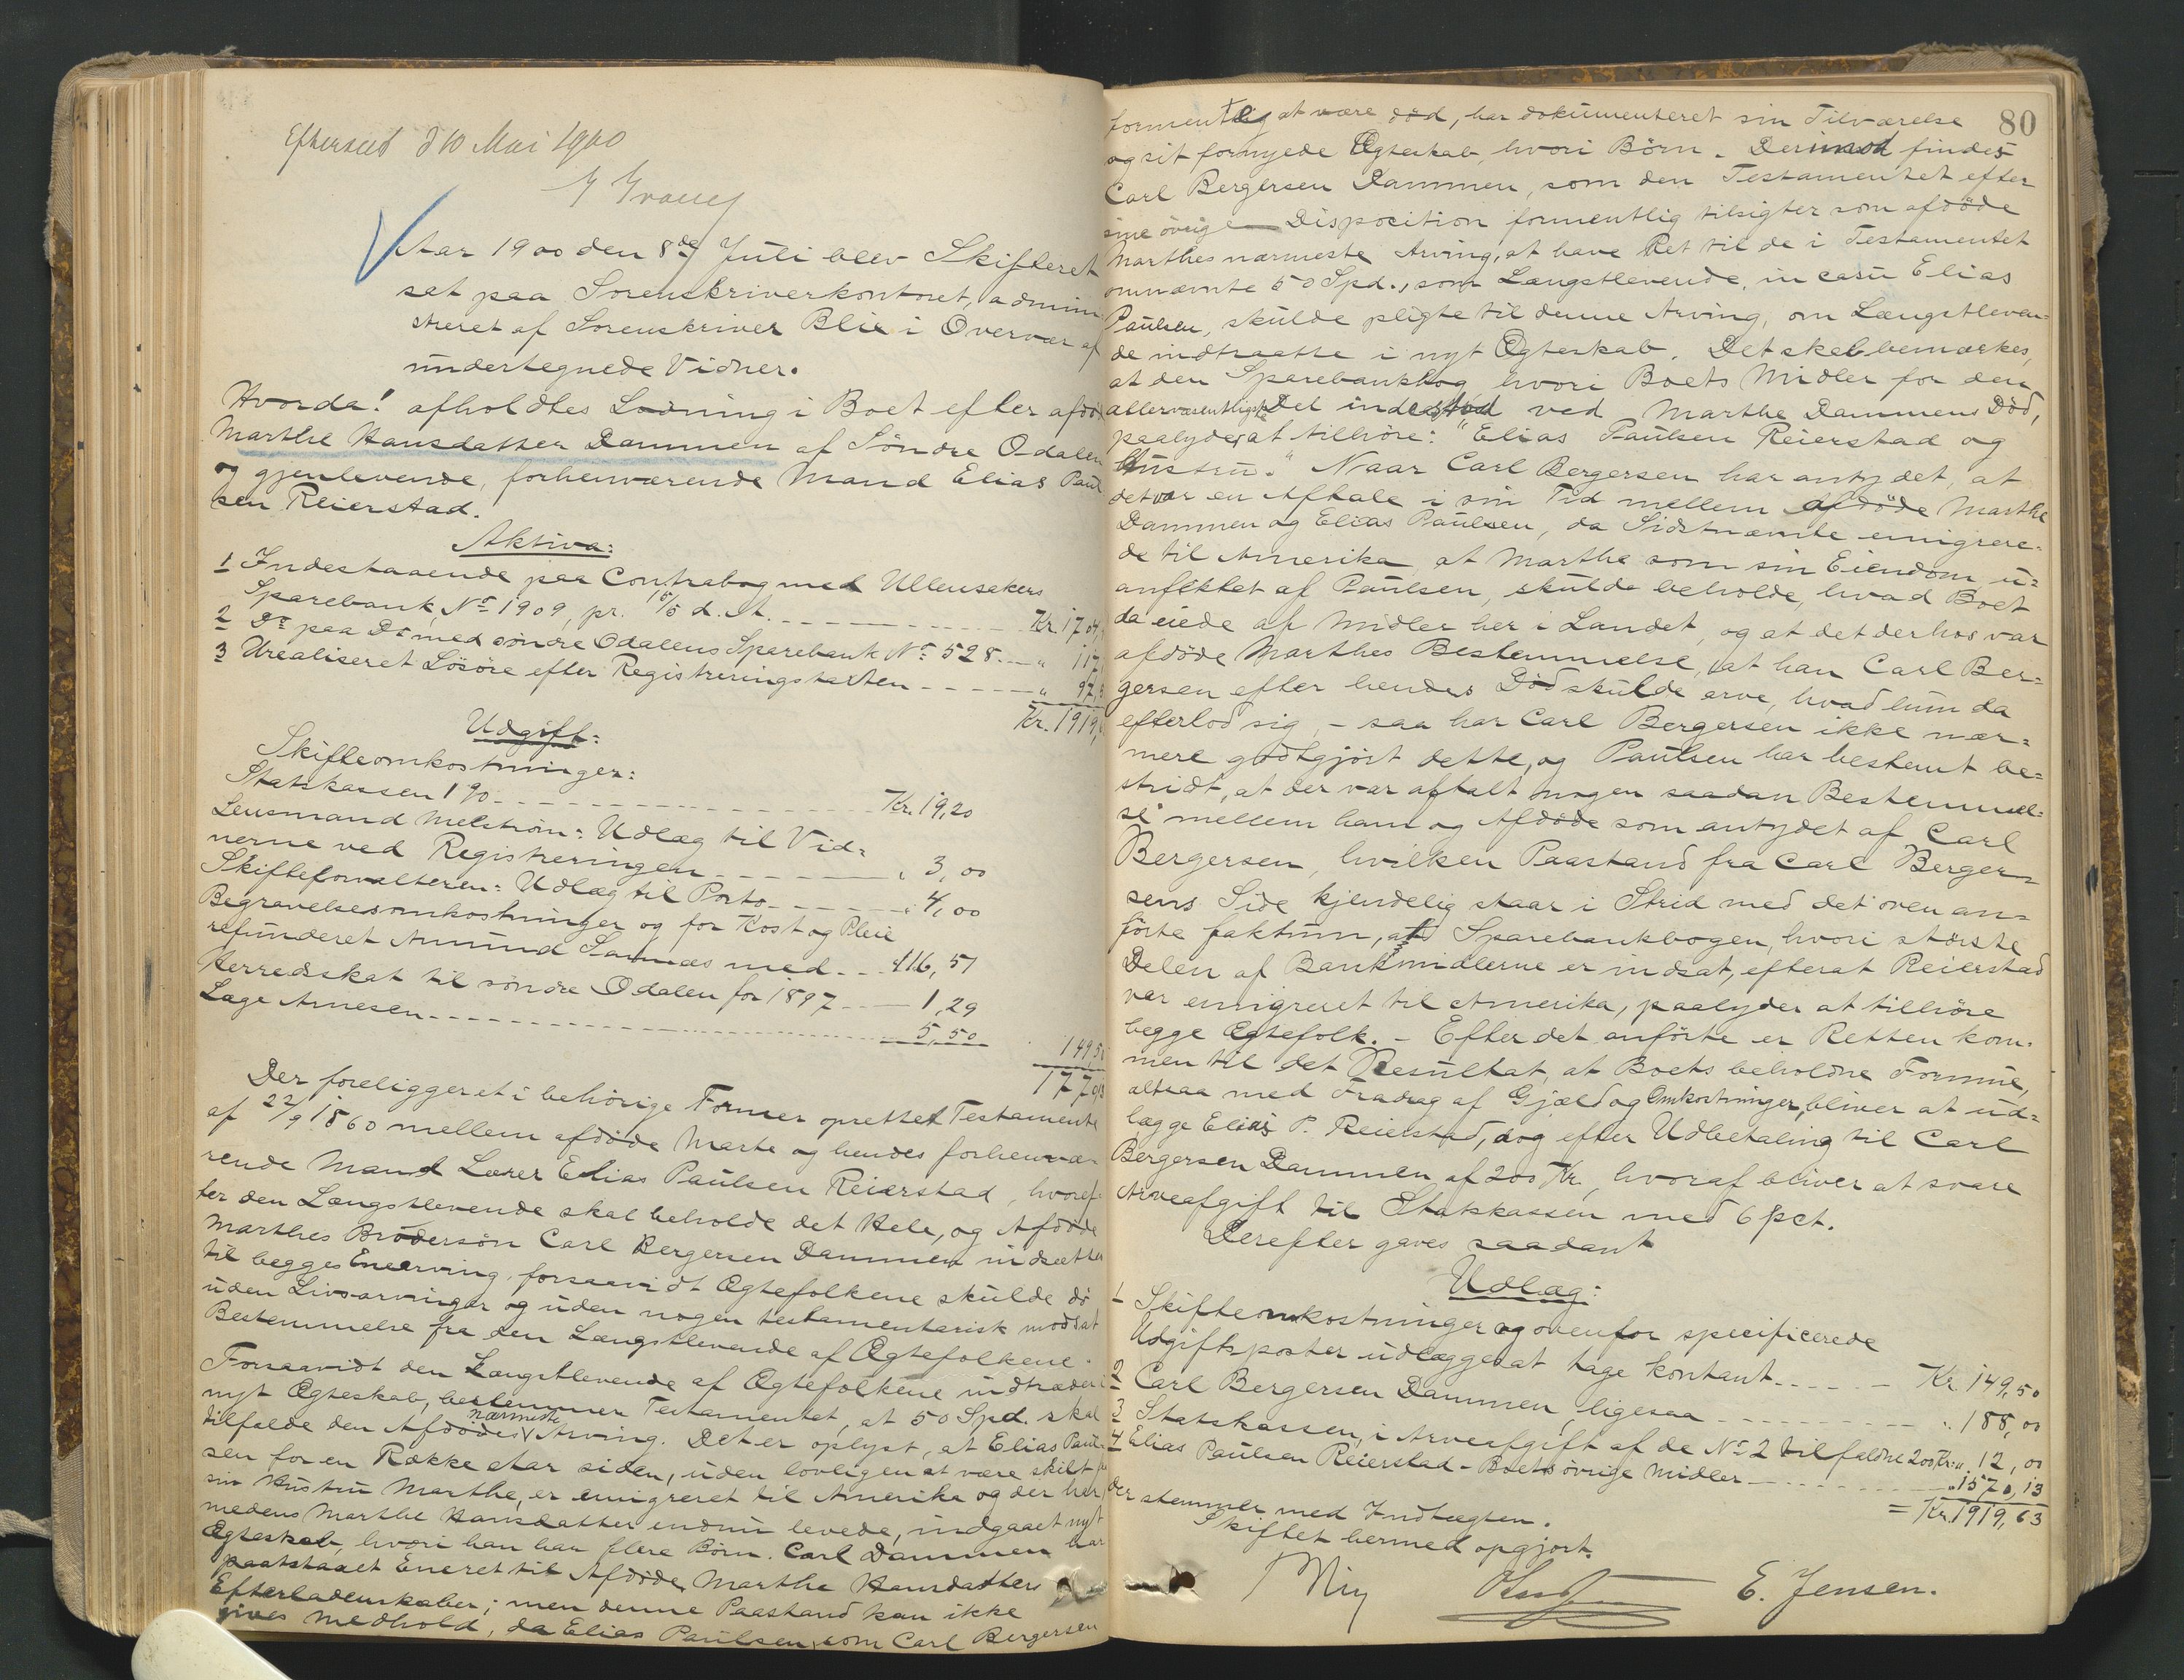 Efterseet d 10 Mai 1900
Aar 1900 den 8de Juli blev Skifteret
sat paa Sorenskriverkontoret, admini
streret af Sorenskriver Blix i Overvær af
undertegnede Vidner.
Hvorda! afholdtes Lodning i Boet efter afdöde
Marthe Hansdatter Dammen af Söndre Odalen
og gjenlevende, forhenværende Mand Elias Paul
sen Reierstad.
Aktiva:
1 Indestaaende paa Contrabog med Ullensakers
Sparebank, No 1909, pr. 15/5 d. A. Kr. 1704,
2 Do paa Do med söndre Odalens Sparebank No 528. " 117,
3 Urealiseret Lösöre efter Registreringstaxten " 97,
Kr. 1919,
Udgift:
Skifteomkostninger:
Statskassen 1% Kr. 19,20
Lensmand Melström: Udlæg til Vid=
nerne ved Registreringen " 3,00
Skifteforvalteren: Udlæg til Porto " 4,00
Begravelsesomkostninger og for Kost og Pleie
refunderet Amund med 116,51
Herredskat til söndre Odalen for 1897 1,29
Læge Arnesen 5,50
149,50
Der foreligger et i behörige Former oprettet Testamente
af 22/9 1860 mellem afdöde Marte og hendes forhenvæ-
rende Mand Lærer Elias Paulsen Reierstad, hvoref-
ter den Længstlevende skal beholde det Hele, og Afdöde
Marthes Brodersön Carl Bergersen Dammen indsættes
til begges Enearving, forsaavidt Ægtefolkene skulde dö
uden Livsarvinger og uden nogen testamentarisk modsat
Bestemmelse fra den Længstlevende af Ægtefolkene.
Forsaavidt den Længstlevende af Ægtefolkene indtræder i
nyt Ægteskab, bestemmer Testamentet, at 50 Spd. skal
tilfalde den Afdödes nærmeste Arving. Det er oplyst, at Elias Paul-
sen for en Række Aar siden, uden lovligen at være skilt fra
sin Hustru Marthe, er emigreret til Amerika og der her,
medens Marthe Hansdatter endnu levede, indgaaet nyt
Ægteskab, hvori han har flere Börn. Carl Dammen har
paastaaet Eneret til Afdöde Marthe Hansdatters
Efterladenskaber; men denne Paastand kan ikke
gives Medhold, da Elias Paulsen, som Carl Bergersen
80
formentlig at være död, har dokumenteret sin Tilværelse
og sit fornyede Ægteskab, hvori Börn. Derimod findes
Carl Bergersen Dammen, som den Testamentet efter
sine övrige Disposition formentlig tilsigter som afdöde
Marthes nærmeste Arving, at have Ret til de i Testamentet
omnævnte 50 Spd., som Længstlevende, in casu Elias
Paulsen, skulde pligte til denne Arving, om Længstleven=
de indtraatte i nyt Ægteskab. Det skal bemærkes,
at den Sparebankbog hvori Boets Midler for den
allervæsentligste Del indestod ved Marthe Dammens Död,
paalyder at tilhöre: "Elias Paulsen Reierstad og
Hustru." Naar Carl Bergersen har antydet, at
det var en Aftale i sin Tid mellem afdöde Marthe
Dammen og Elias Paulsen, da Sidstnævnte emigrere=
de til Amerika, at Marthe som sin Eiendom, u=
anfektet af Paulsen, skulde beholde, hvad Boet
da eiede af Midler her i Landet, og at det derhos var
afdöde Marthes Bestemmelse, at han Carl Ber=
gersen efter hendes Död skulde arve, hvad hun da
efterlod sig, – saa har Carl Bergersen ikke nær=
mere godtgjort dette, og Paulsen har bestemt be=
stridt, at der var aftalt nogen saadan Bestemmel=
se mellem ham og Afdöde som antydet af Carl
Bergersen, hvilken Paastand fra Carl Berger=
sens Side kjendelig staar i Strid med det oven an=
förte faktum, at Sparebankbogen, hvori störste
Delen af Bankmidlerne er indsat, efterat Reierstad
var emigreret til Amerika, paalyder at tilhöre
begge Ægtefolk. – Efter det anförte er Retten kom=
men til det Resultat, at Boets beholdne Formue,
altsaa med Fradrag af Gjæld og Omkostninger, bliver at ud=
lægge Elias P. Reierstad, dog efter Udbetaling til Carl
Bergersen Dammen af 200 Kr., hvoraf bliver at svare
Arveafgift til Statskassen med 6 pct.
Derefter gaves saadant
Udlæg:
1 Skifteomkostninger og ovenfor specificerede
Udgiftsposter udlægges at tage kontant Kr. 149,50
2 Carl Bergersen Dammen ligesaa " 188,00
3 Statskassen, i Arveafgift af de No 2 tilfaldne 200 Kr. " 12,00
4 Elias Paulsen Reierstad – Boets övrige Midler " 1570,13
= Kr. 1919,63
der stemmer med Indtægten.
Skiftet hermed opgjort.
E. Jensen.